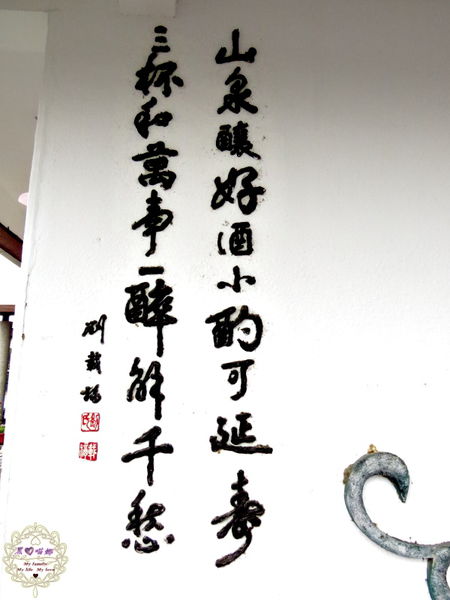 山泉釀好酒小酌可延壽
三杯和萬事一醉解千愁
My Family
My life My love